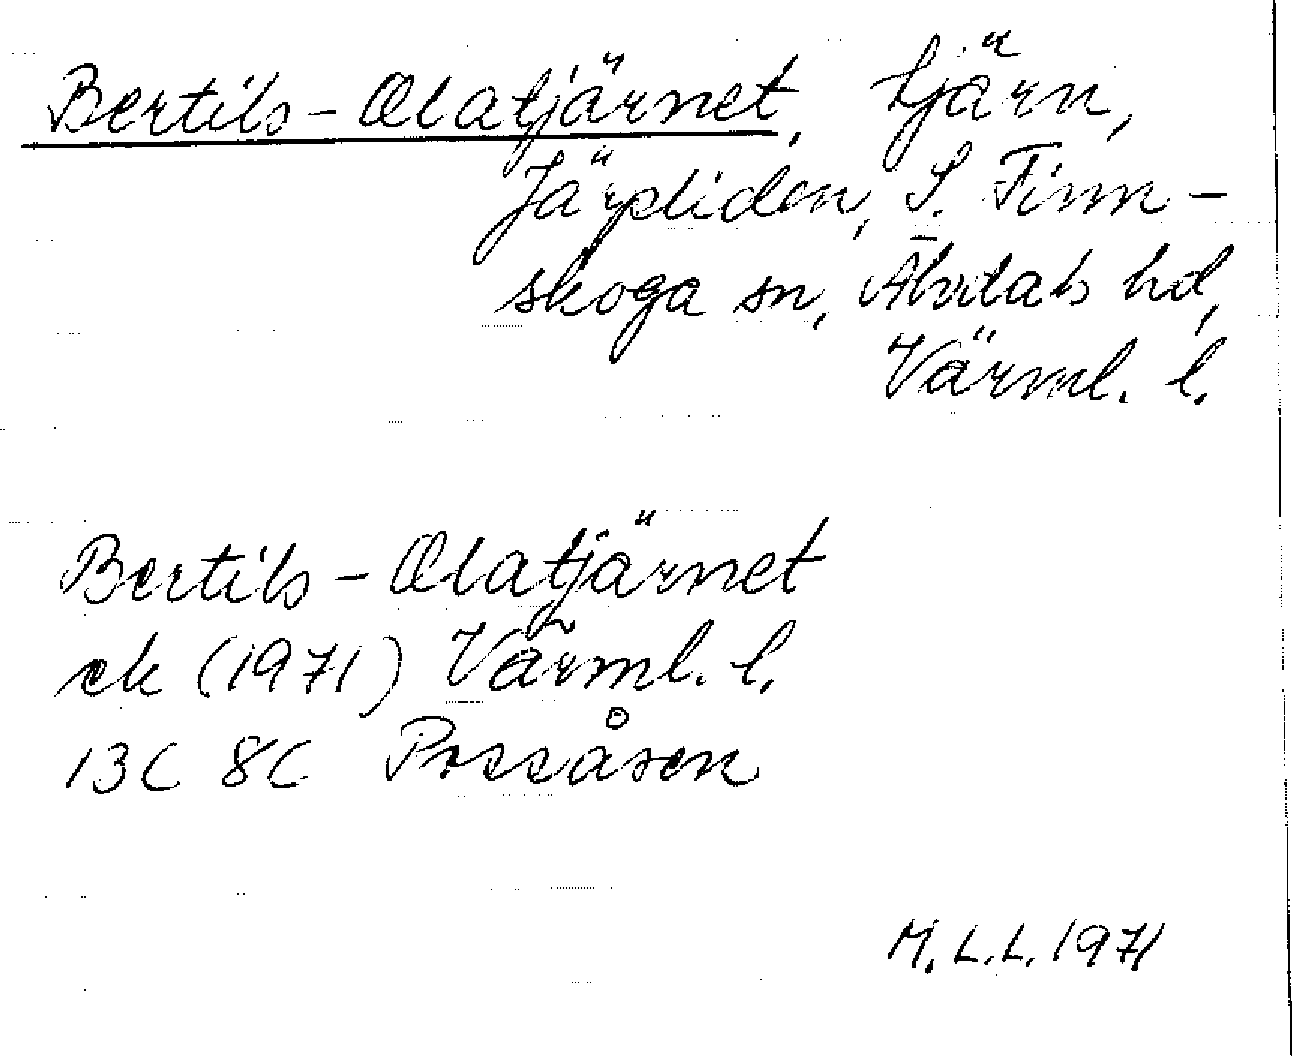 Bertils-Olatjärnet, tjärn,
Järpliden, S. Finn-
skoga sn, Älvdals hd,
Värml. l.
Bertils-Olatjärnet
ek (1971) Värml. l.
13C 8C Possåsen
M.L.L. 1971